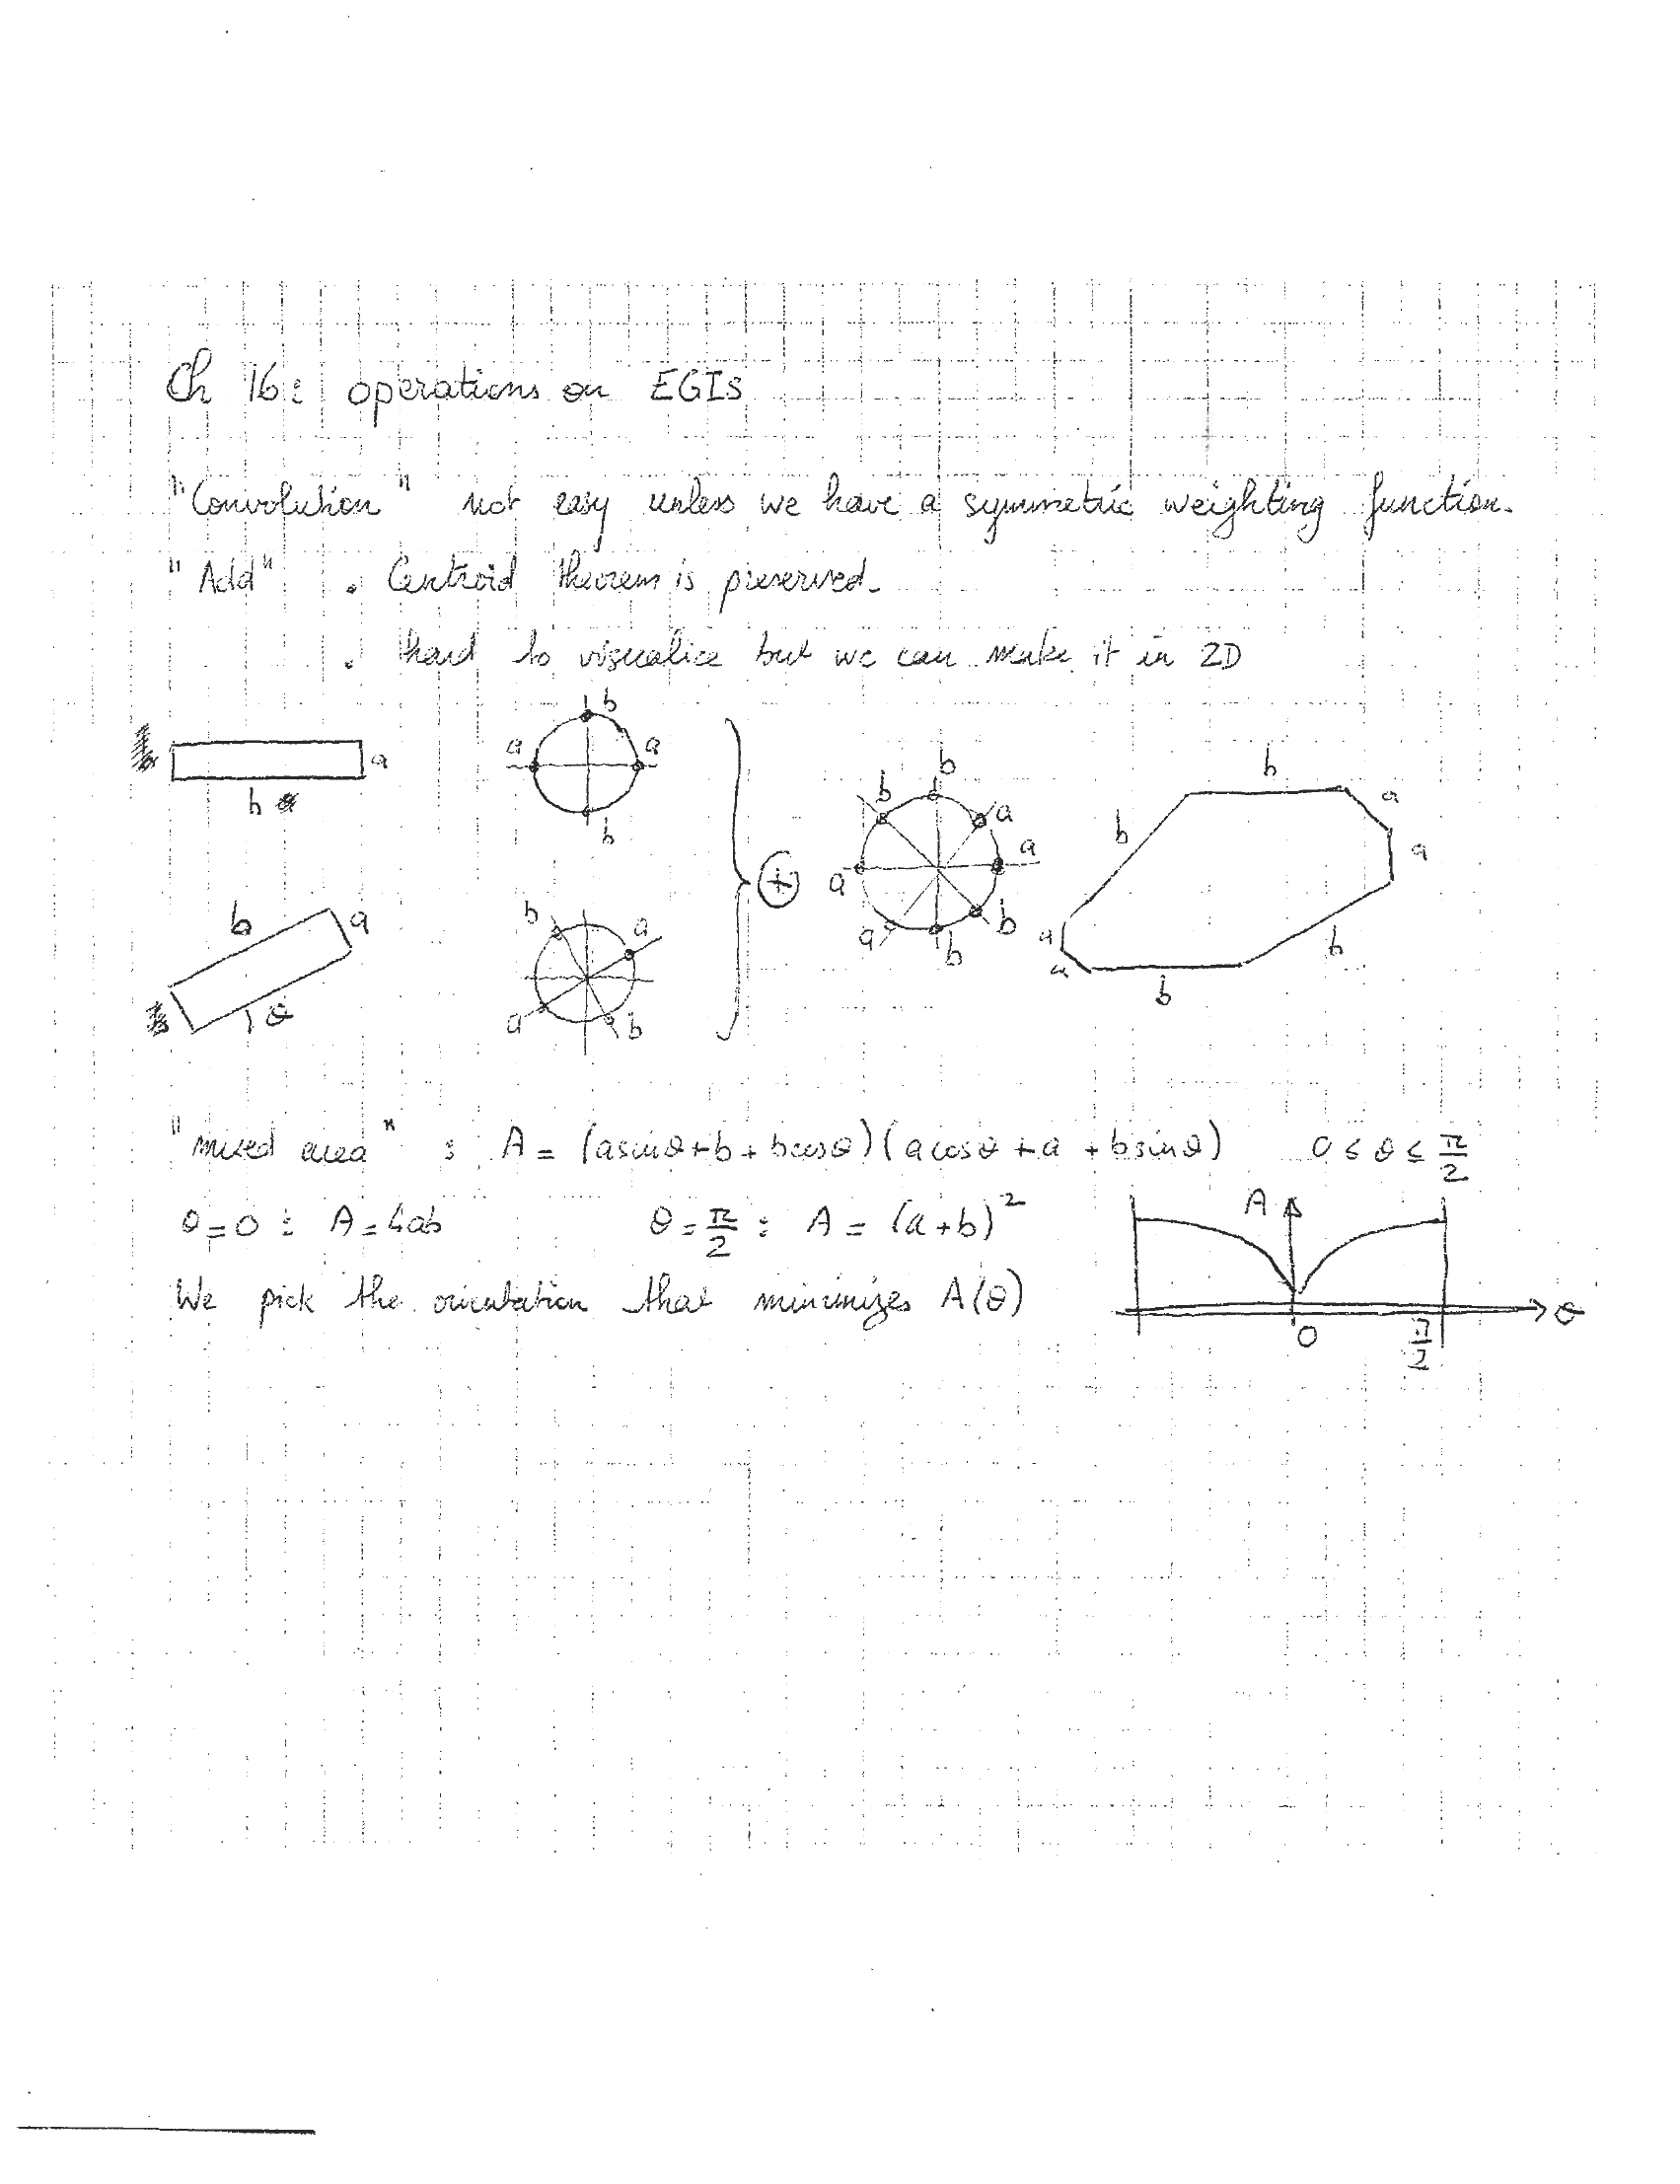 Ch 16: operations on EGIs
"Convolution" not easy unless we have a symmetric weighting function.
"Add" . Centroid theorem is preserved.
. hard to visualice but we can make it in 2D
a
b
b
a
a
b
b
a
θ
b
a
a
b
+
b
b
a
a
a
a
b
b
b
a
b
a
a
a
b
b
"mixed area" : A = (a sinθ + b + b cosθ)(a cosθ + a + b sinθ) 0 ≤ θ ≤ π/2
θ = 0 : A = 4ab θ = π/2 : A = (a+b)²
We pick the orientation that minimizes A(θ)
A
θ
0
π/2